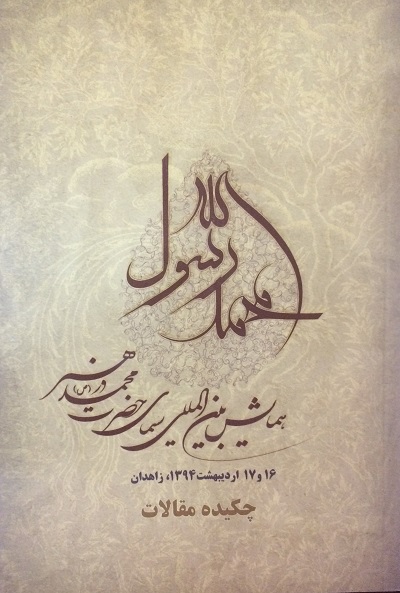 محمد رسول الله
همایش بین المللی سیمای حضرت محمد (ص) در هنر
۱۶ و ۱۷ اردیبهشت ۱۳۹۴، زاهدان
چکیده مقالات